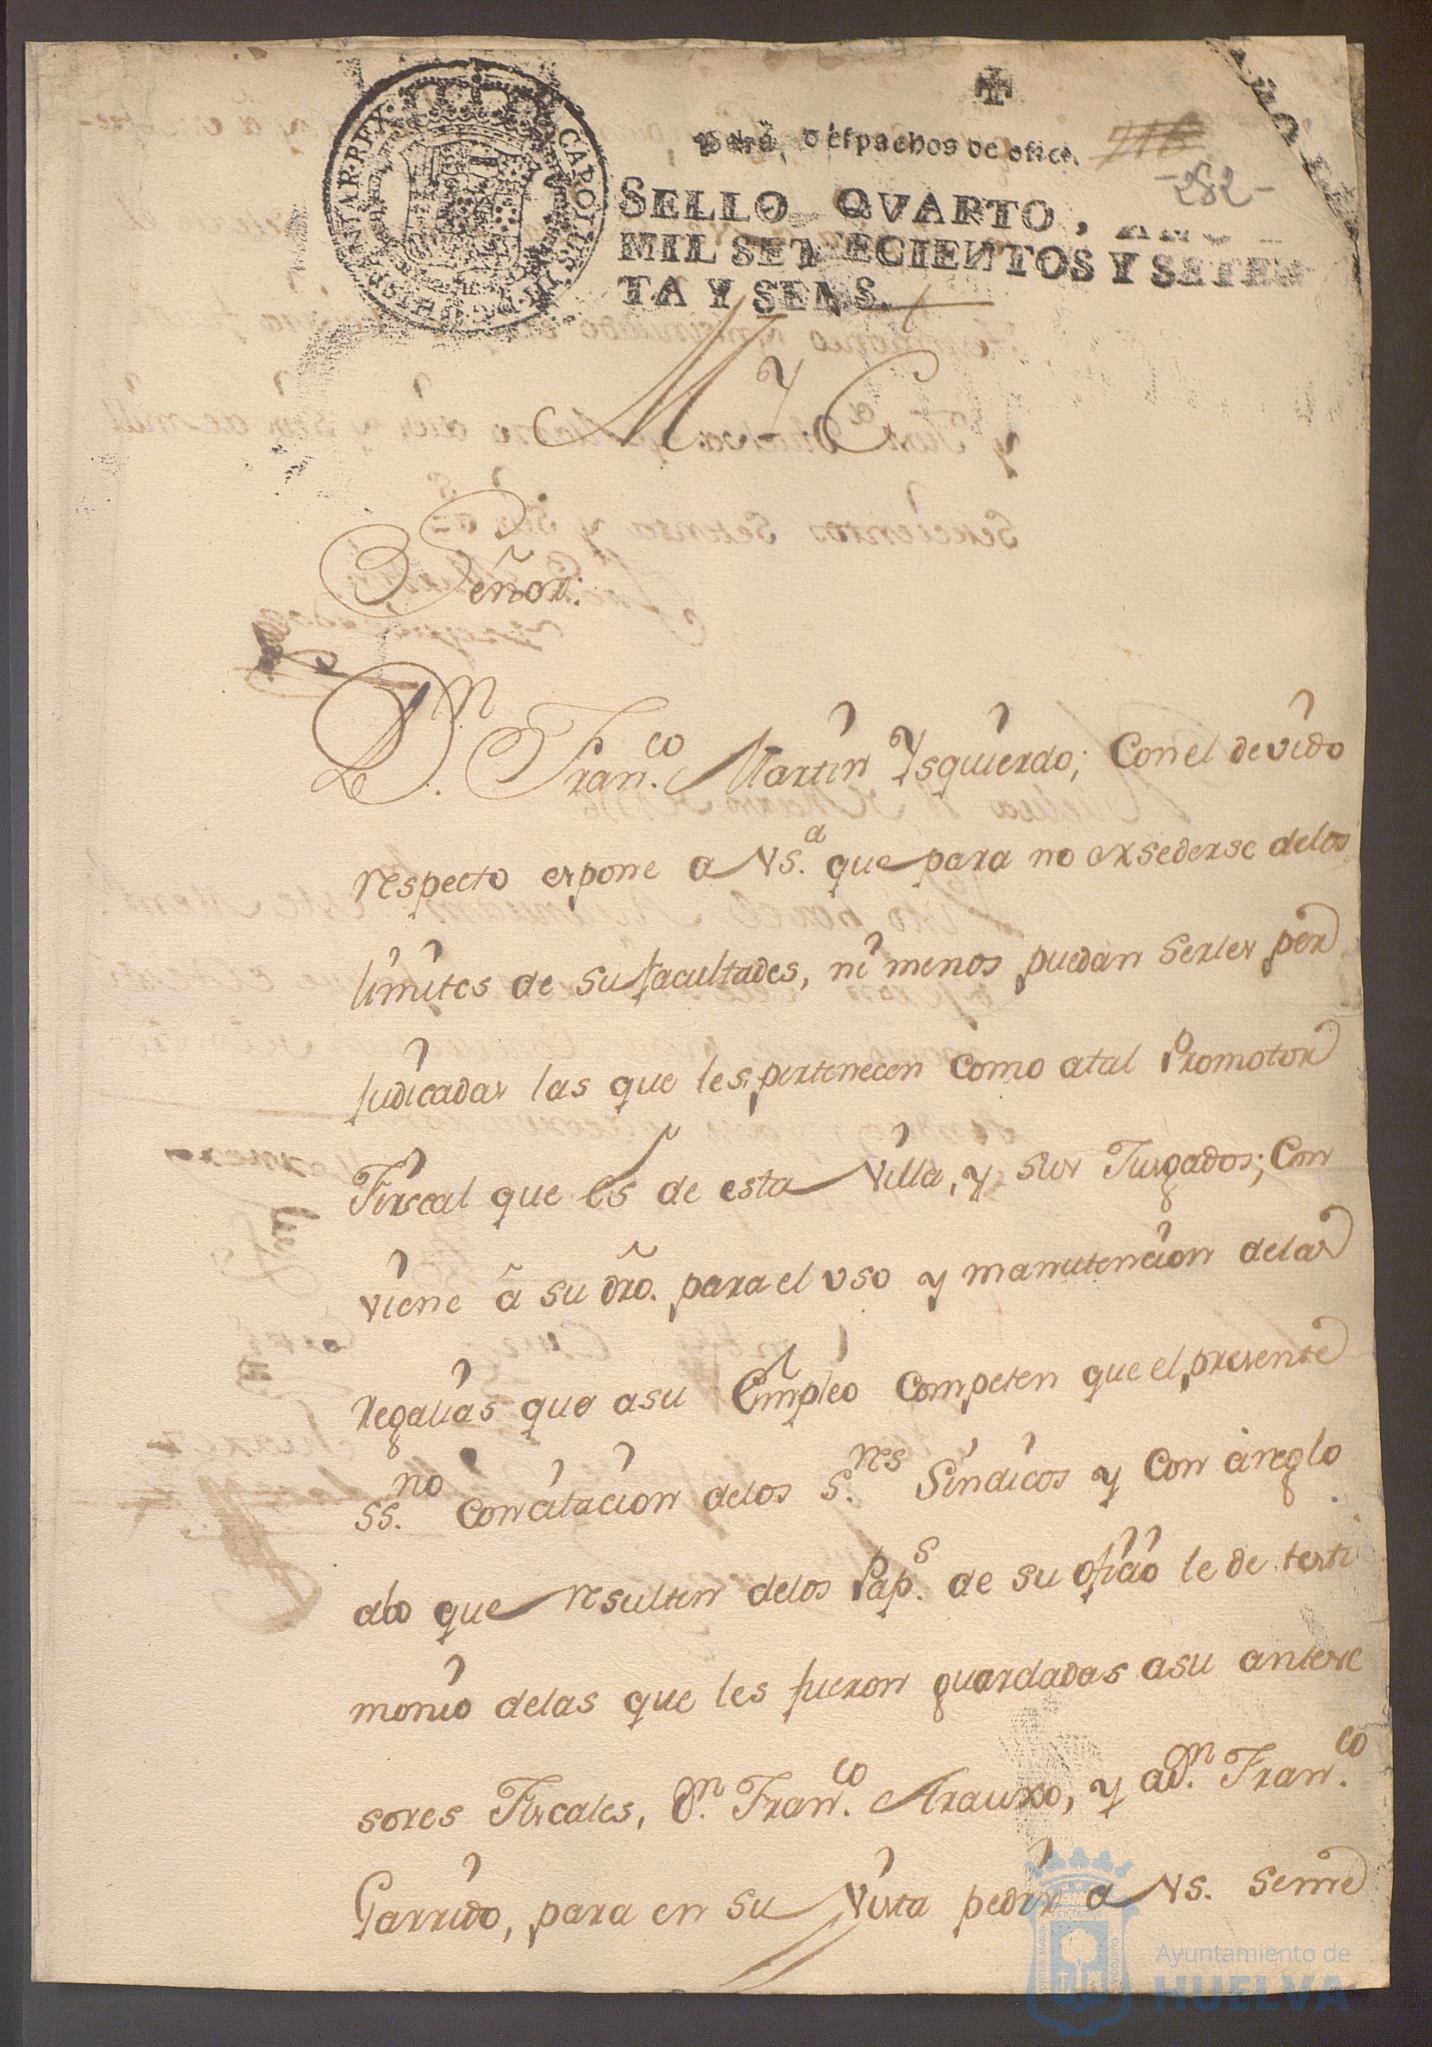 Para despachos de oficio.
116
-282-
SELLO QVARTO, AÑO
MIL SETECIENTOS Y SETEN
TA Y SEIS.
M. Y C.ª
Señor:
D.n Fran.co Martin Ysquierdo; Con el devido
respecto expone a VS.a que para no exsederse delos
limites de su facultades, ni menos puedan serles per
judicadas las que les pertenecen como atal Promotor
Fiscal que es de esta Villa, y sus Jusgados; Con
viene â su dr̃o. para el uso y manutencion delas
regalias que asu Empleo competen que el presente
ss.no con citacion delos S.res Sindicos y con àreglo
alo que resulten delos Pap.s de su oficio le de testi
monio delas que les fueron guardadas asu antese
sores Fiscales, D.n Fran.co Arauxo, y a D.n Fran.co
Garrido, para en su Vista pedir a VS. seme
CAROLUS
Ayuntamiento de
HUELVA